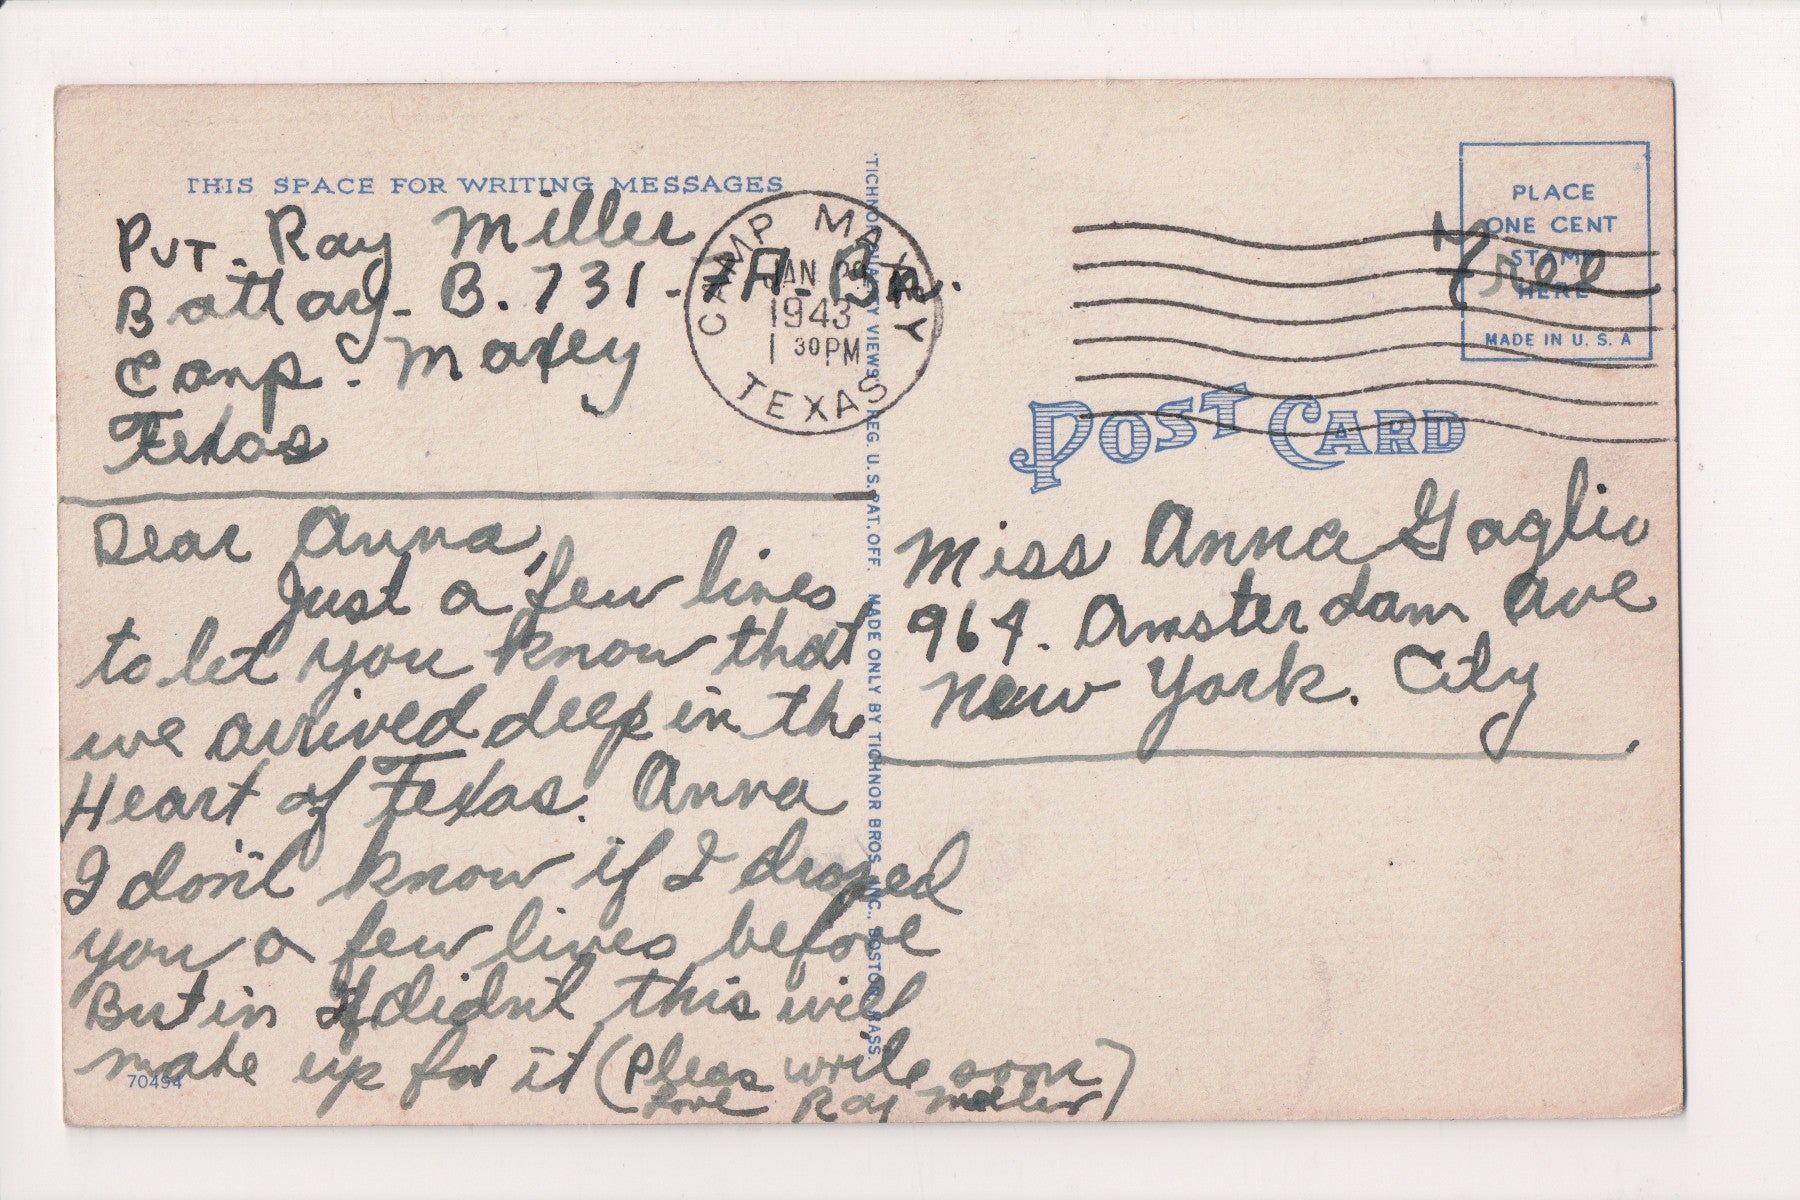 THIS SPACE FOR WRITING MESSAGES
Pvt. Ray Miller
Battary- B. 731- F A- Bn.
Camp. Maxey
Texas
Dear Anna,
Just a few lines
to let you know that
we arrived deep in the
Heart of Texas. Anna
I don't know if I droped
you a few lines before
But in if I didn't this will
make up for it (Pleas write soon
Love Ray Miller)
70494
CAMP MAXEY
JAN
1943
1 30PM
TEXAS
"TICHNOR QUALITY VIEWS" REG. U.S. PAT. OFF. MADE ONLY BY TICHNOR BROS. INC., BOSTON, MASS.
PLACE
ONE CENT
STAMP
HERE
MADE IN U. S. A
Free
POST CARD
Miss Anna Gaglio
964. Amsterdam Ave
New York. City